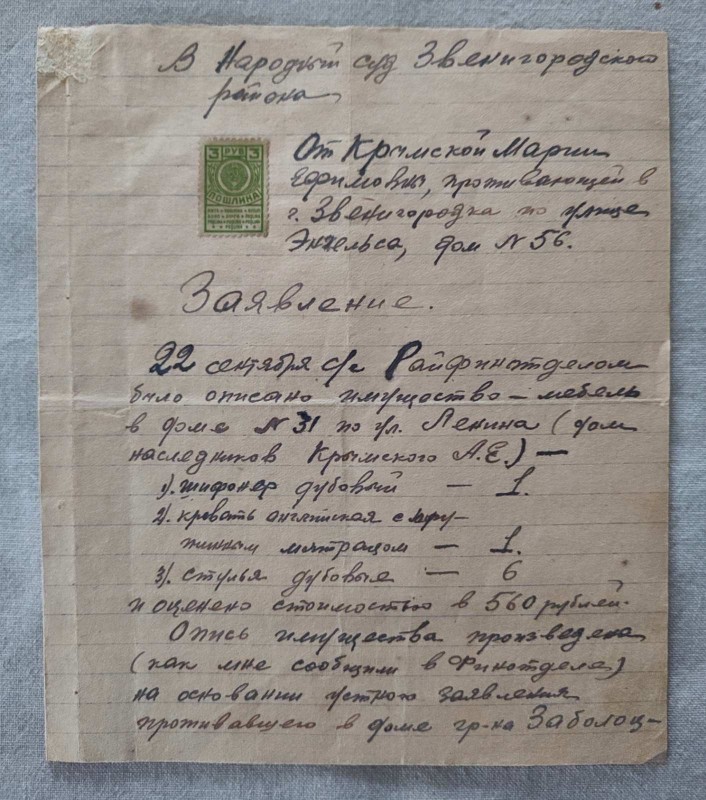 В Народный суд Звенигородского
района
3 РУБ 3
ПОШЛИНА
От Крымской Марии
Ефимовны, проживающей в
г. Звенигородка по улице
Энгельса, дом N 56.
Заявление.
22 сентября с/г Райфинотделом
было описано имущество – мебель
в доме N 31 по ул. Ленина (дом
наследников Крымского А.Е.) —
1). шифонер дубовый — 1.
2). кровать английская с пру-
жинным матрацом — 1.
3). стулья дубовые — 6
и оценено стоимостью в 560 рублей.
Опись имущества произведена
(как мне сообщили в Финотделе)
на основании устного заявления
проживавшего в доме гр-на Заболоц-